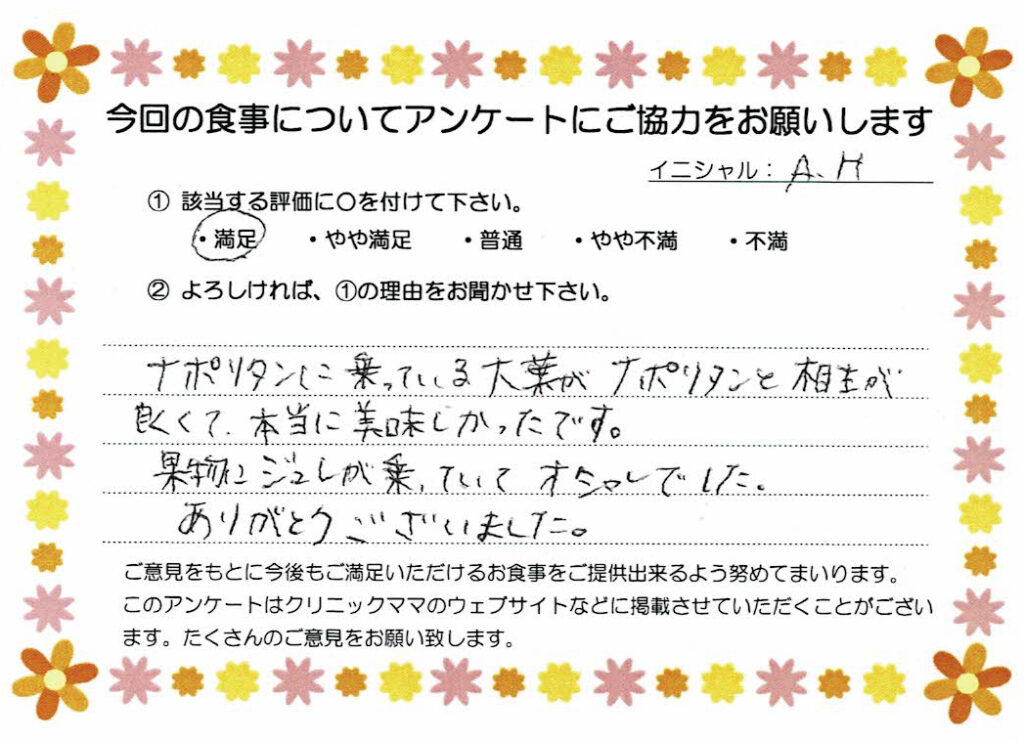 今回の食事についてアンケートにご協力をお願いします
イニシャル： A.H
① 該当する評価に〇を付けて下さい。
・満足 ・やや満足 ・普通 ・やや不満 ・不満
② よろしければ、①の理由をお聞かせ下さい。
ナポリタンに乗っている大葉がナポリタンと相性が
良くて、本当に美味しかったです。
果物にジュレが乗っていてオシャレでした。
ありがとうございました。
ご意見をもとに今後もご満足いただけるお食事をご提供出来るよう努めてまいります。
このアンケートはクリニックママのウェブサイトなどに掲載させていただくことがござい
ます。たくさんのご意見をお願い致します。